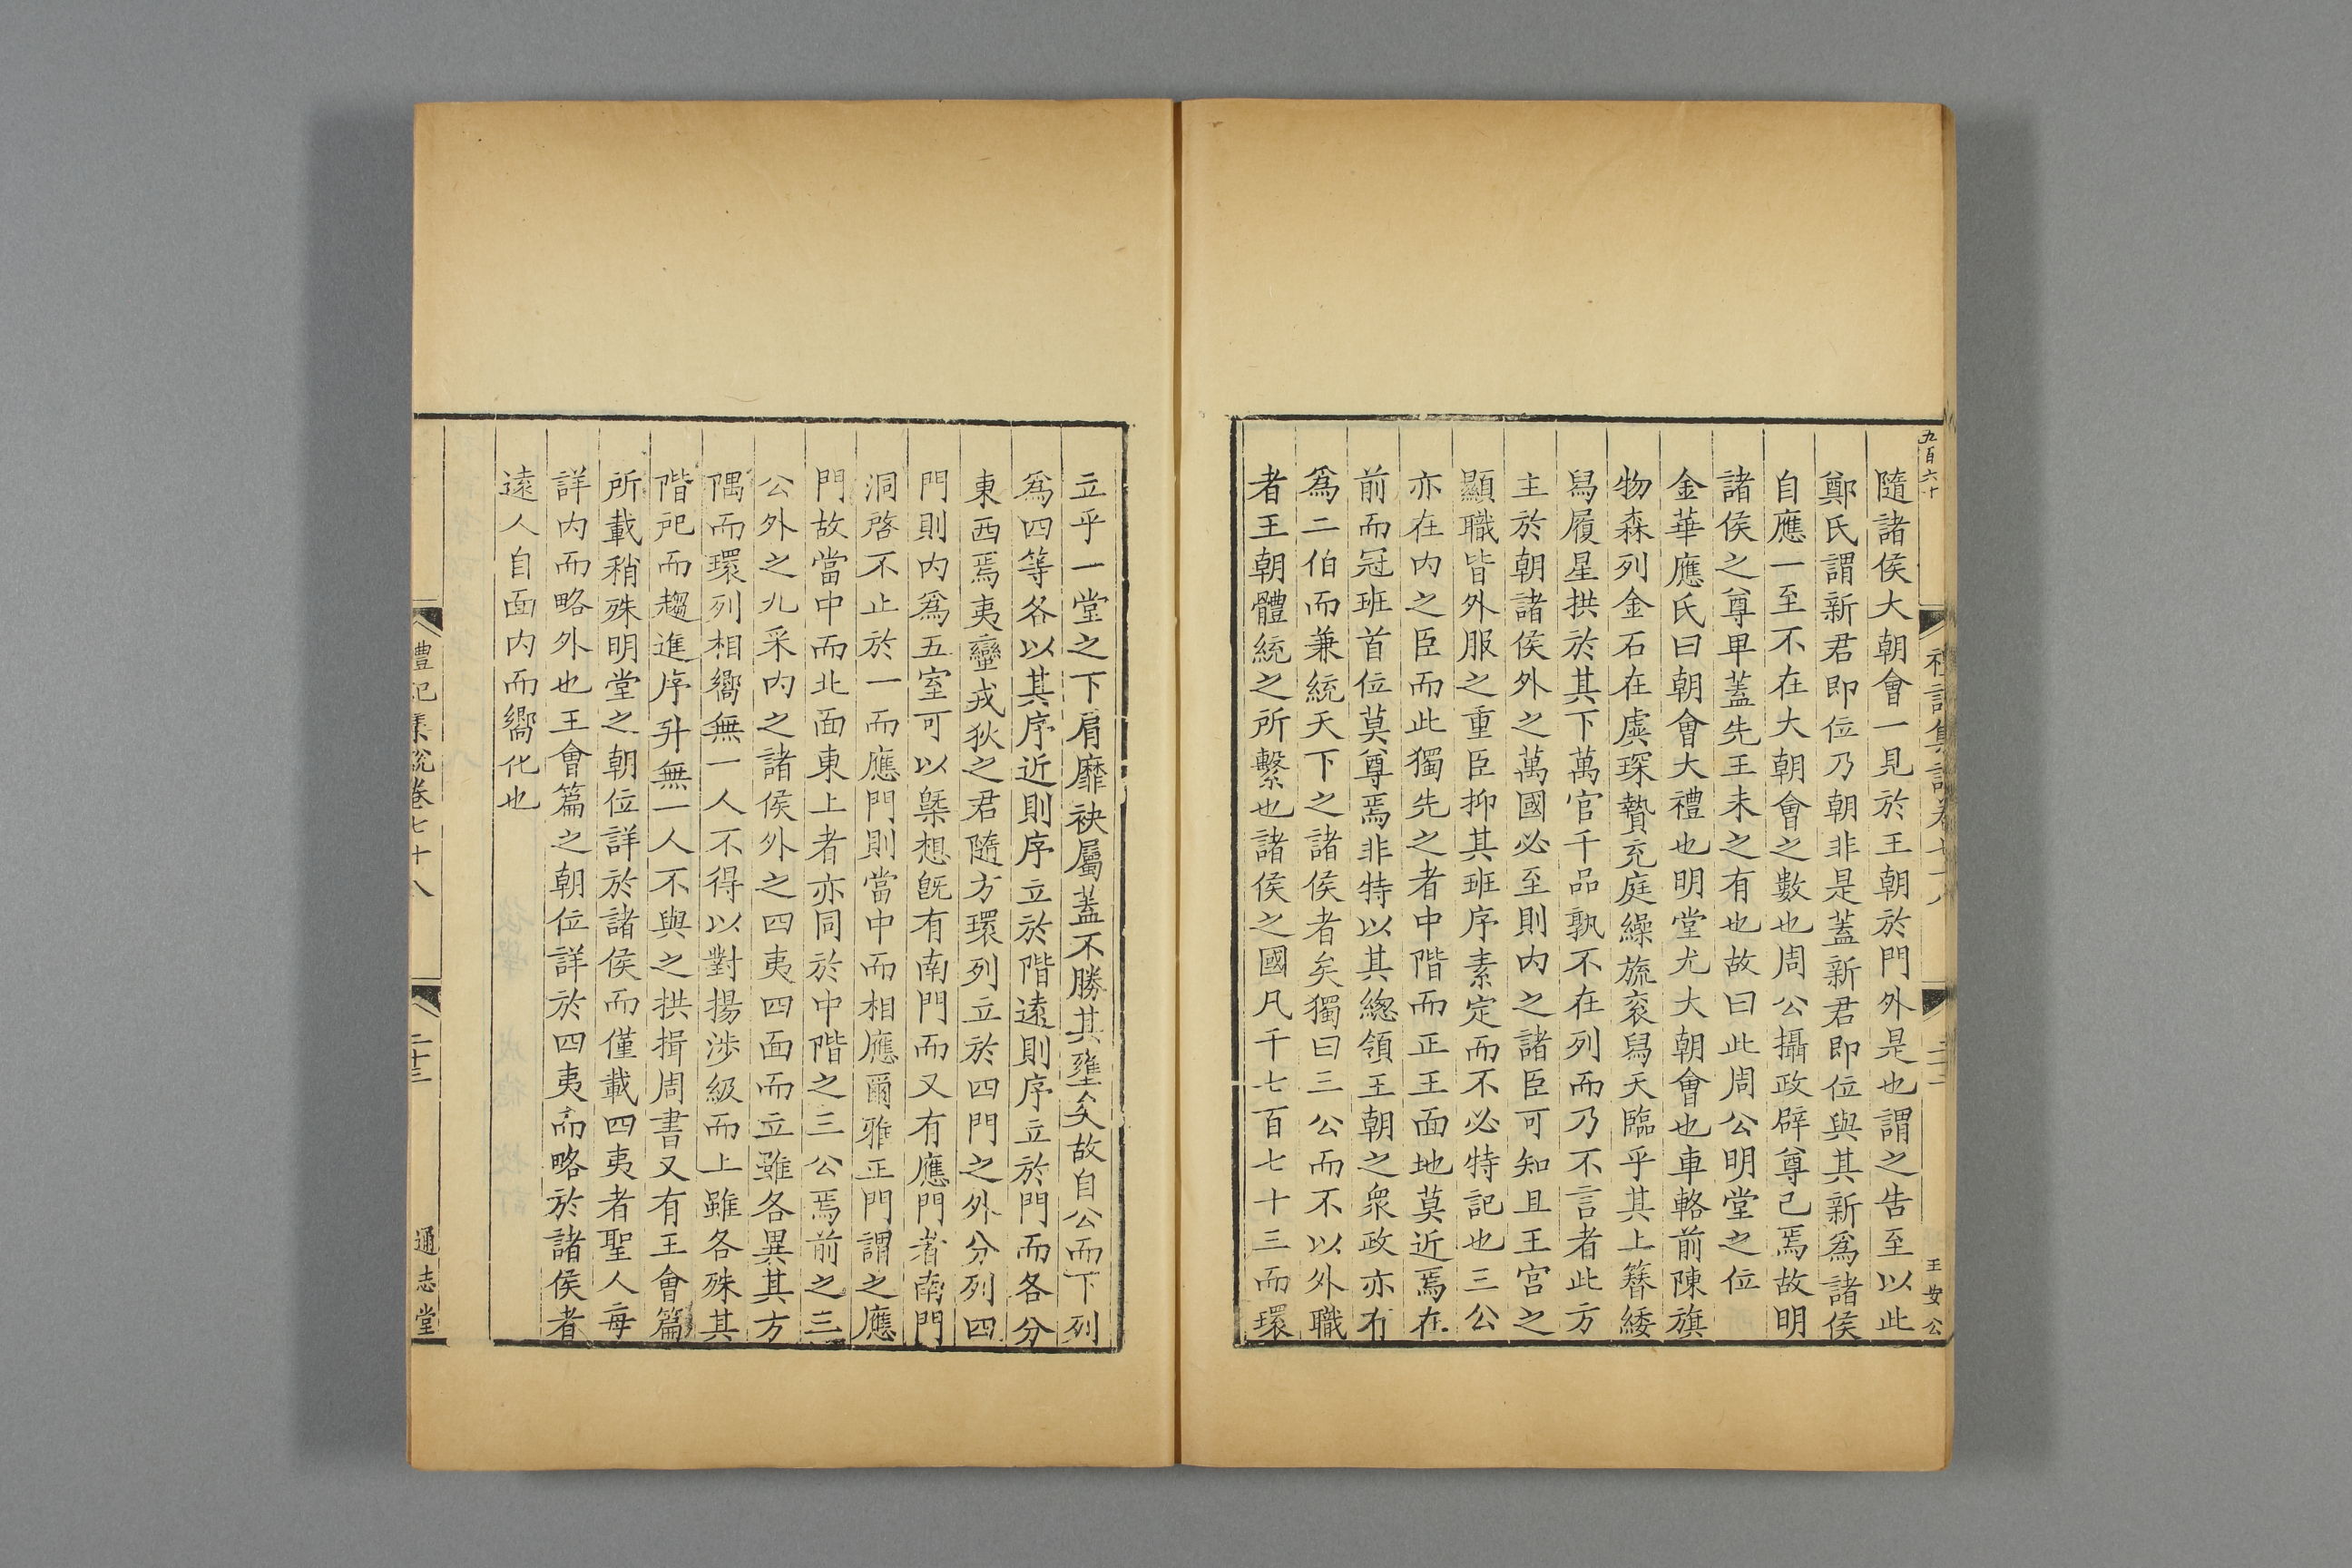 九百六十
隨諸侯大朝會一見於王朝於門外是也謂之告至以此
鄭氏謂新君即位乃朝非是蓋新君即位與其新爲諸侯
自應一至不在大朝會之數也周公攝政辟尊己焉故明
諸侯之尊卑蓋先王未之有也故曰此周公明堂之位
金華應氏曰朝會大禮也明堂尤大朝會也車輅前陳旗
物森列金石在虡琛贄充庭繅旒衮舄天臨乎其上簪緌
舄履星拱於其下萬官千品孰不在列而乃不言者此方
主於朝諸侯外之萬國必至則内之諸臣可知且王宫之
顯職皆外服之重臣抑其班序素定而不必特記也三公
亦在内之臣而此獨先之者中階而正王面地莫近焉在
前而冠班首位莫尊焉非特以其緫領王朝之衆政亦有
爲二伯而兼統天下之諸侯者矣獨曰三公而不以外職
者王朝體統之所繫也諸侯之國凡千七百七十三而環
禮記集說卷七十八
王安公
立乎一堂之下肩靡袂屬蓋不勝其壅矣故自公而下列
爲四等各以其序近則序立於階遠則序立於門而各分
東西焉夷蠻戎狄之君隨方環列立於四門之外分列四
門則内爲五室可以槩想旣有南門而又有應門者南門
洞啓不止於一而應門則當中而相應爾雅正門謂之應
門故當中而北面東上者亦同於中階之三公焉前之三
公外之九采内之諸侯外之四夷四面而立雖各異其方
隅而環列相嚮無一人不得以對揚涉級而上雖各殊其
階戺而趨進序升無一人不與之拱揖周書又有王會篇
所載稍殊明堂之朝位詳於諸侯而僅載四夷者聖人每
詳内而略外也王會篇之朝位詳於四夷而略於諸侯者
遠人自面内而嚮化也
禮記集說卷七十八
二十三
通志堂